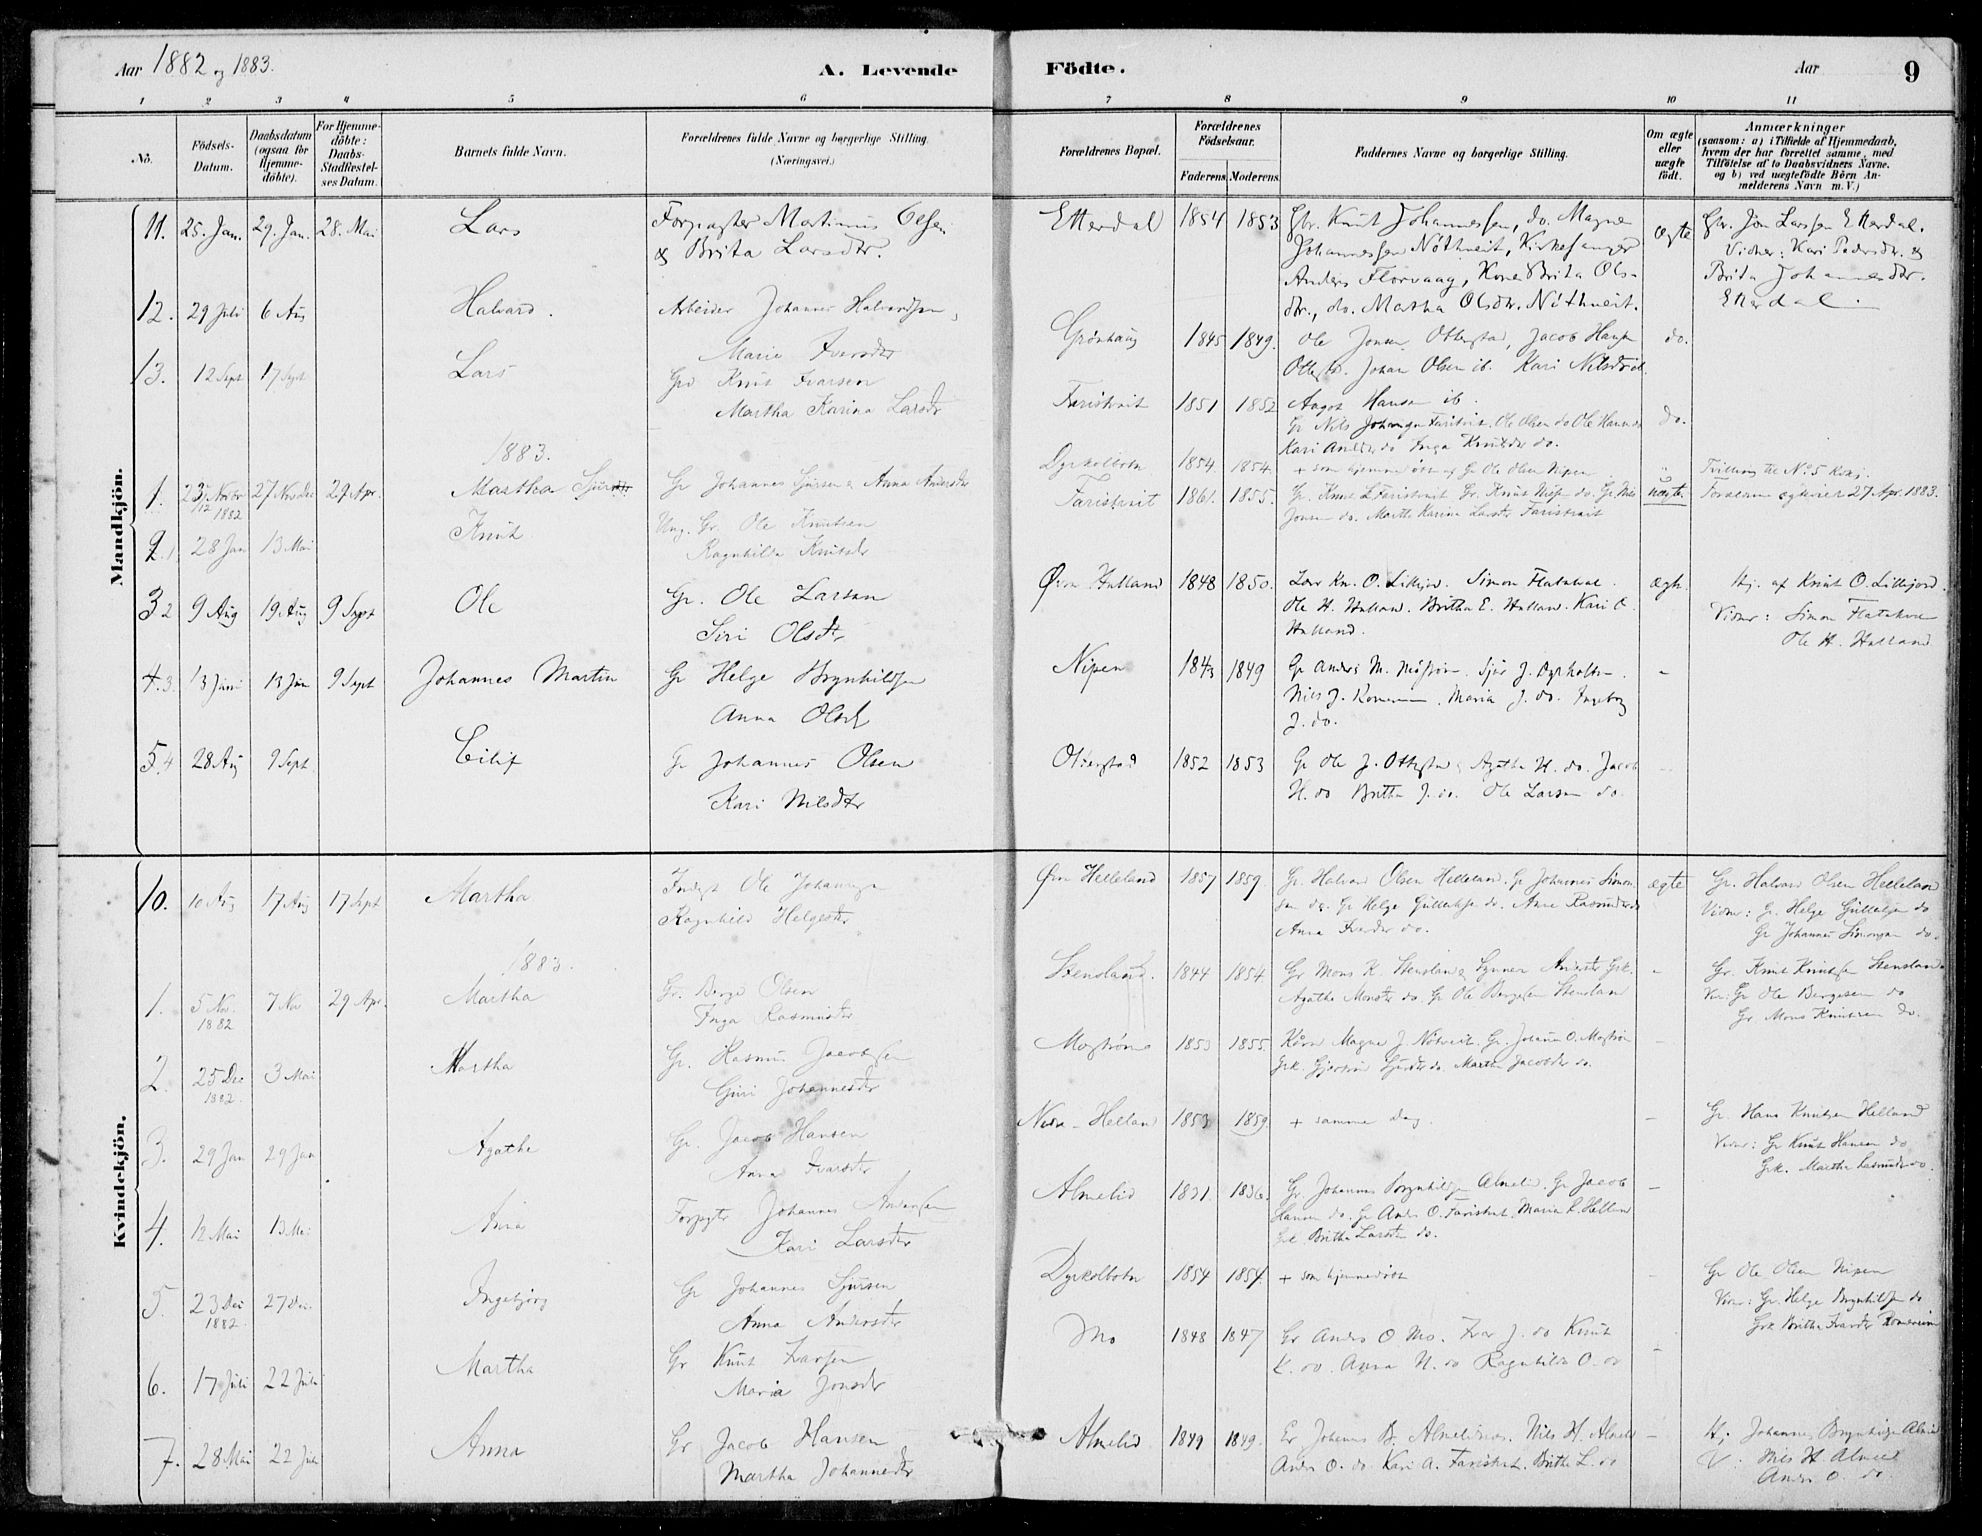 Aar 1882 og 1883.
A. Levende Födte.
Aar 9
1 2 3 4 5 6 7 8 9 10 11
No.
Födsels-Datum.
Daabsdatum (ogsaa for Hjemmedöbte).
For Hjemmedöbte: Daabs-Stadfæstelses Datum.
Barnets fulde Navn.
Forældrenes fulde Navne og borgerlige Stilling. (Næringsvei.)
Forældrenes Bopæl.
Forældrenes Födselsaar.
Faderens Moderens.
Faddernes Navne og borgerlige Stilling.
Om ægte eller uægte födt.
Anmærkninger
(saasom: a) i Tilfælde af Hjemmedaab,
hvem der har forrettet samme, med
Tilföielse af to Daabsvidners Navne.
og b) ved uægtefödte Börn An-
melderens Navn m. V.)
Mandkjön.
11. 25. Jan. 29. Jan. 28. Mai Lars Forpagter Martinus Olsen
& Brita Larsdtr.
Etterdal 1854 1853 Gbr. Knut Johannessen, do. Magne
Johannessen Nøthveit, Kirkesanger
Anders Florvaag, Kone Brita Ols-
dtr., do. Martha Olsdtr. Nøthveit.
ægte
Gbr. Jon Larssen Etterdal.
Vidner: Kari Pedersdtr. &
Brita Johannesdtr.
Etterdal
12. 29 Juli 6 Aug Halvard. Arbeider Johannes Halvardsen,
Marie Iversdtr
Grønhaug 1845 1849. Ole Jonsen Otterstad, Jacob Hansen
Otterst. Johan Olsen ib. Kari Nilsdtr ib.
Aagot Hansen ib.
do.
13. 12 Sept 17 Sept Lars Grd Knut Ivarsen
Martha Karina Larsdtr
Faristveit 1851 1852
Gr Nils Johannesen Faristveit. Ole Olsen do Ole Hansen do
Kari Andersdr do Inga Knutsdr do.
do.
1883.
1. 23 Novbr 12 1882 27 Nov Dec 29 Apr. Martha Gr Johannes Sjursen & Anna Andersdtr
Dyrkolbotn 1854. 1854. + som hjemmedøbt af Gr Ole Olsen Nipen
Tvilling til No 5 Kvkj.
2.1 28 Jan 13 Mai Knut Ung. Gr. Ole Knutsen
Ragnhilda Knutsdr
Faristveit 1861. 1855. Gr. Knut L Faristveit Gr. Knut do. Gr. Nils
Jonsen do. Marthe Karine Larsdtr Faristveit
uægte.
Forældrene ægteviet 27 Apr. 1883.
3 2 9 Aug 19 Aug 9 Sept Ole Gr. Ole Larsen
Siri Olsdtr
Øvre Helland 1848 1850. Lær Kn. O. Lillejord. Simon Flatekval.
Ole H. Helland. Britha E. Helland. Kari O.
Helland.
ægte.
Hj. af Knut O. Lillejord.
Vidner: Simon Flatekval
Ole H. Helland
4.3. 13 Juni 13 Juni 9 Sept Johannes Martin Gr Helge Brynhildsen
Anna Olsdtr
Nipen 1843 1849 Gr Anders M. Mostrøm. Sjur J. Dyrkolbtn.
Nils J. Romerem, Maria J. do. Ingeborg
J. do.
5.4 28 Aug 9 Sept Eilif Gr Johannes Olsen
Kari Nilsdtr
Otterstad 1852 1853 Gr Ole J. Otterstad, Agatha H. do. Jacob
H. do Britha J. do. Ole Larsen do.
Kvindekjön.
10. 10 Aug 17 Aug 17 Sept Martha Ole Johannesen
Ragnhild Helgesdtr
Øvre Helleland 1857 1859. Gr. Halvard Olsen Helleland. Gr Johannes Simon-
sen do. Gr Helge Gulleksen do. Anne Rasmusdr do
Anna Ivarsdr do.
ægte
Gr. Halvard Olsen Helleland
Vidner: Gr. Helge Gulleksen do
Gr Johannes Simonsen do.
1883.
1. 5 Nov. 1882 7 Nov 29 Apr. Martha Gr. Berge Olsen
Inga Rasmusdtr
Stensland. 1844 1854. Gr Mons K. Stensland, Synneva Andersdtr Grk.
Agathe Monsdtr do. Gr Ole Bergesen Stensland
Gr. Knut Knutsen Stensland.
Vi. Gr Ole Bergesen do
Gr Mons Knutsen do.
2. 25 Dec 1882. 3 Mai Martha Gr. Rasmus Jacobsen
Guri Johannesdtr
Mostrøm 1853 1855. Magne J. Nøtveit. Gr. Johannes O. Mostrøm
Grk. Gjertrud Sjursdr do. Martha Jacobsdr do.
3. 29 Jan 29 Jan Agathe Gr. Jacob Hansen
Anna Ivarsdtr
Nedre Helland 1853 1859. + samme Dag.
Gr. Hans Knutsen Helland
Vidner: Gr Knut Hansen do
Grk. Martha Rasmusdr do.
4. 12 Mai 13 Mai Anna Forpgtr Johannes Andersen
Kari Larsdtr
Almelid 1831. 1836. Gr. Johannes Brynhildsen Almelid. Gr Jacob
Hansen do. Gr Anders O. Faristveit. Maria L. Helland
Grk. Britha Larsdtr do.
5. 23 Dec 1882. 27 Dec. Ingebjørg Gr Johannes Sjursen
Anna Andersdtr
Dyrkolbotn 1854 1854. + som hjemmedøbt
Gr Ole Olsen Nipen
Vidn: Gr. Helge Brynhildsen do
Grk Britha Ivarsdtr Romereim
6. 17 Juli 22 Juli Martha Gr Knut Ivarsen
Maria Jonsdr
Mo 1848 1847 Gr Anders O Mo. Ivar J. do Knut
K. do. Anna N. do Ragnhilda O. do
7. 28 Mai 22 Juli Anna Gr Jacob Hansen
Martha Johannesdtr
Almelid 1849 1849. Gr Johannes B. Almelid. Nils H. Almelid
Anders O. do. Kari A. Faristveit. Britha L. do
Hj. Johannes Brynhildsen Almelid
V: Nils H Almelid
Anders O. do.